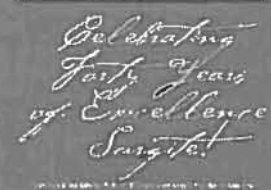 Celebrating
Forty Years
of Excellence
Surgite!